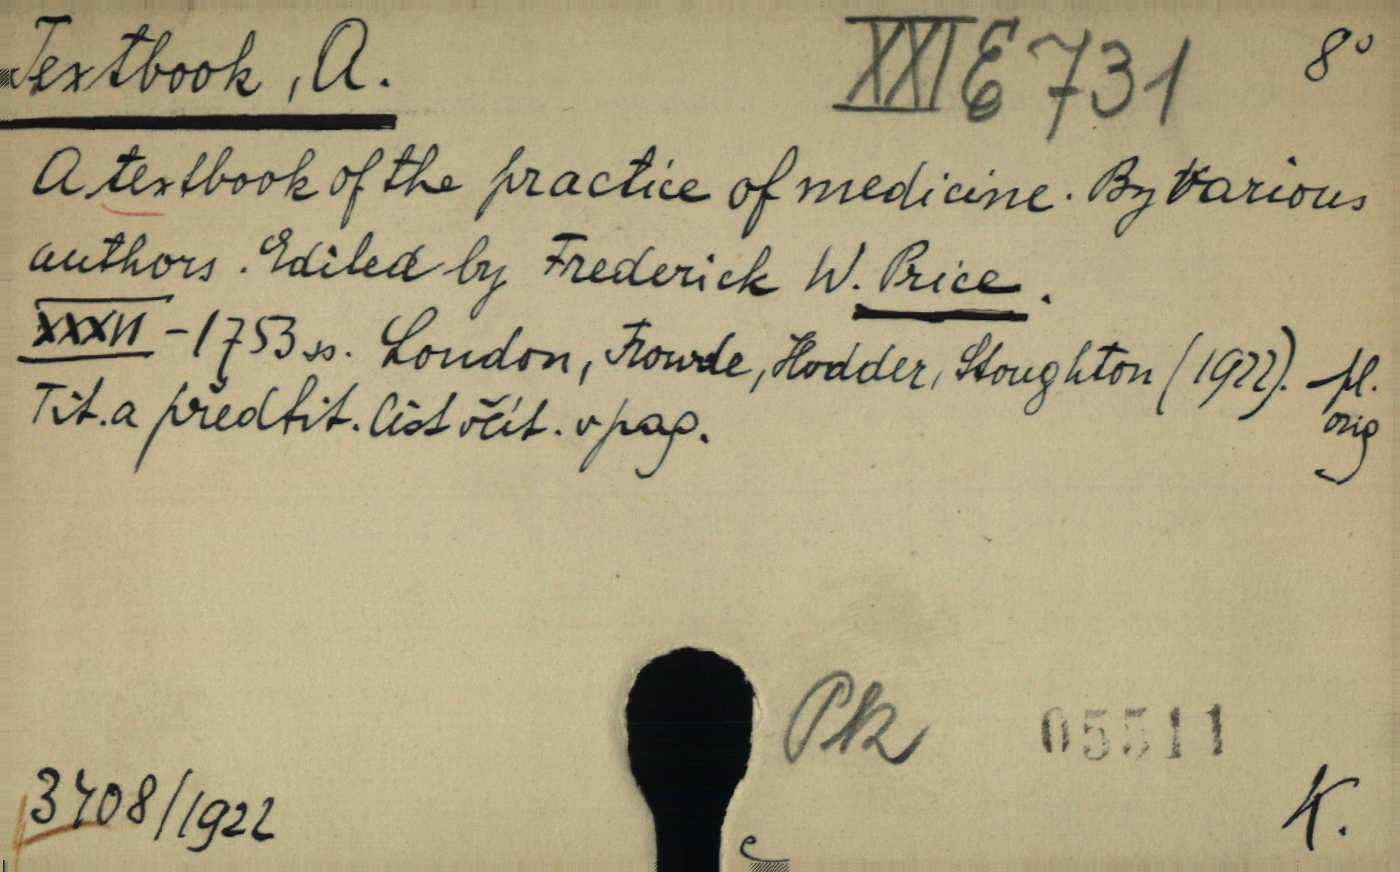 Textbook, A.
XXI E 731
8°
A textbook of the practice of medicine. By Various
authors. Edited by Frederick W. Price.
XXXVI - 1753 ss. London, Frowde, Hodder, Stoughton (1922). pl.
orig
Tit. a předtit. list včít. v pag.
Pk
05511
3408/1922
K.